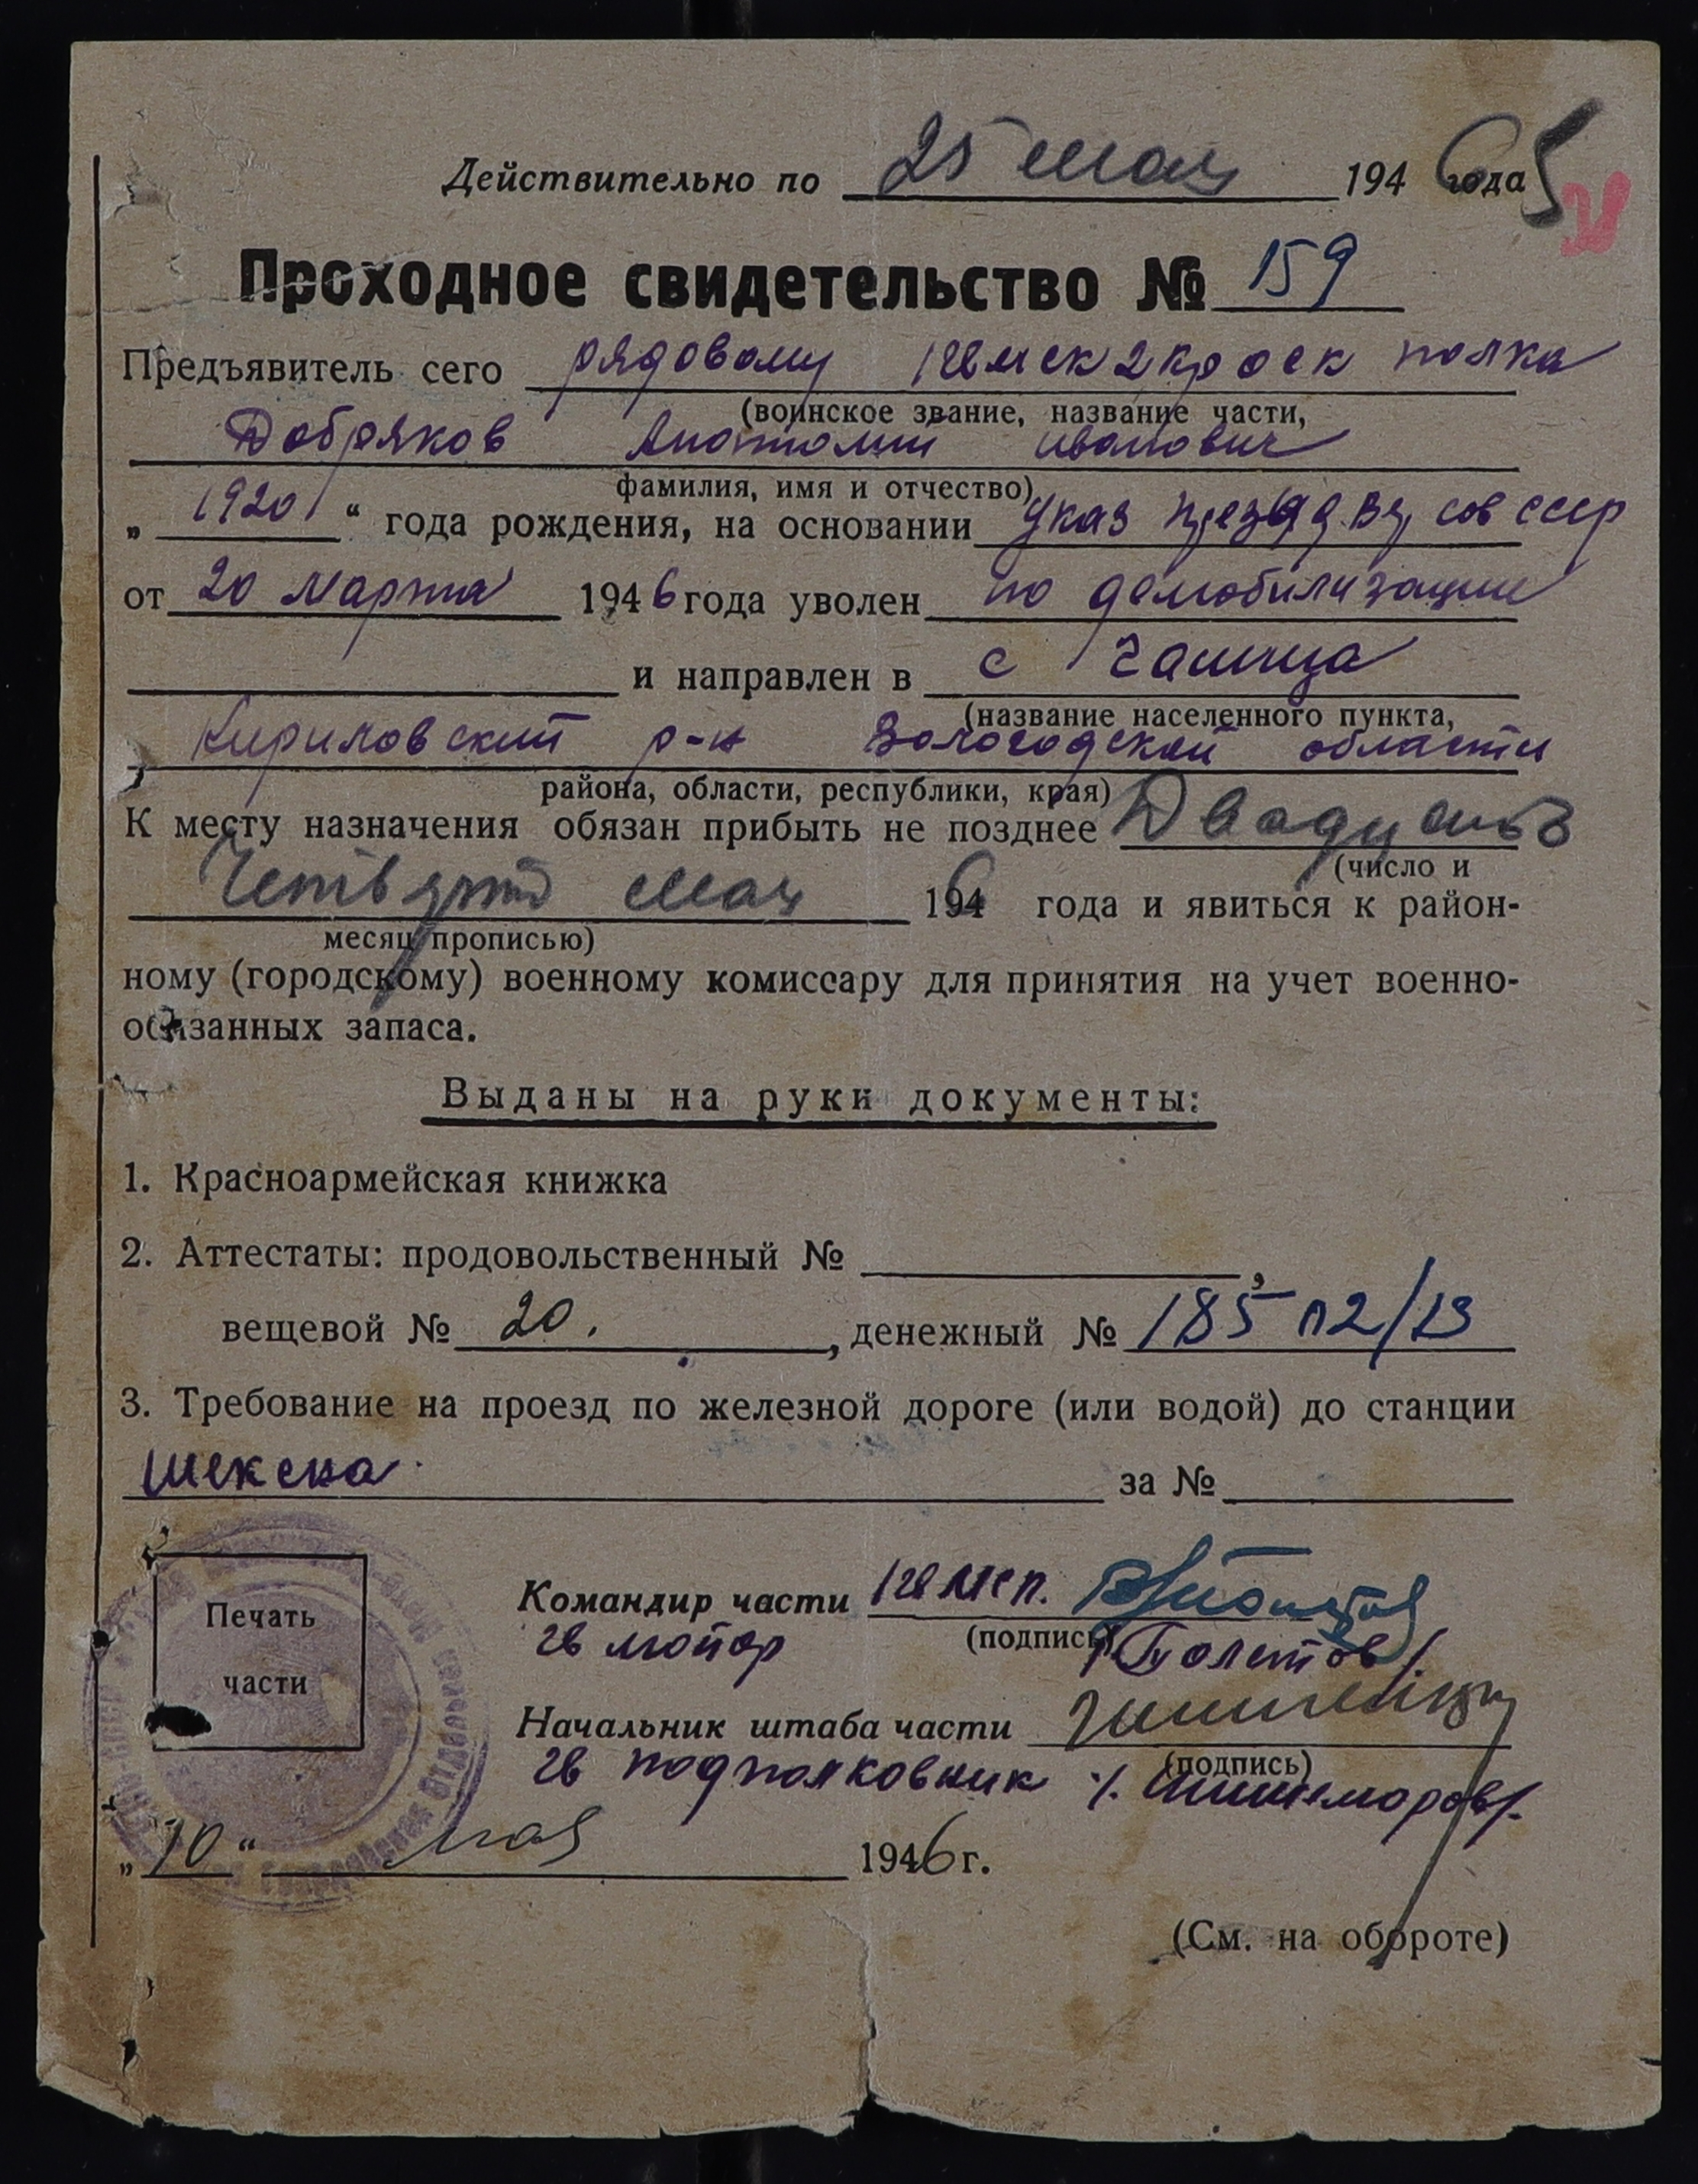 Действительно по 25 мая 1946 года 5
28
Проходное свидетельство № 159
Предъявитель сего рядовому 1 гв мск 2 кр оск полка
(воинское звание, название части,
Добряков Анатолий Иванович
фамилия, имя и отчество)
„ 1920 “ года рождения, на основании Указ През Вр сов ссср
от 20 марта 1946 года уволен по демобилизации
и направлен в с
(название населенного пункта,
Кириловский р-н Вологодской области
района, области, республики, края)
К месту назначения обязан прибыть не позднее Двадцать
(число и
Четвертое мая 1946 года и явиться к район-
месяц прописью)
ному (городскому) военному комиссару для принятия на учет военно-
обязанных запаса.
Выданы на руки документы:
1. Красноармейская книжка
2. Аттестаты: продовольственный № ,
вещевой № 20. , денежный № 185
3. Требование на проезд по железной дороге (или водой) до станции
Шексна за №
Печать
части
Командир части 1 гв мсп.
(подпись)
гв майор /Болотов/
Начальник штаба части
(подпись)
гв подполковник /. Шишморов/.
„ 10 “ мая 1946 г.
(См. на обороте)